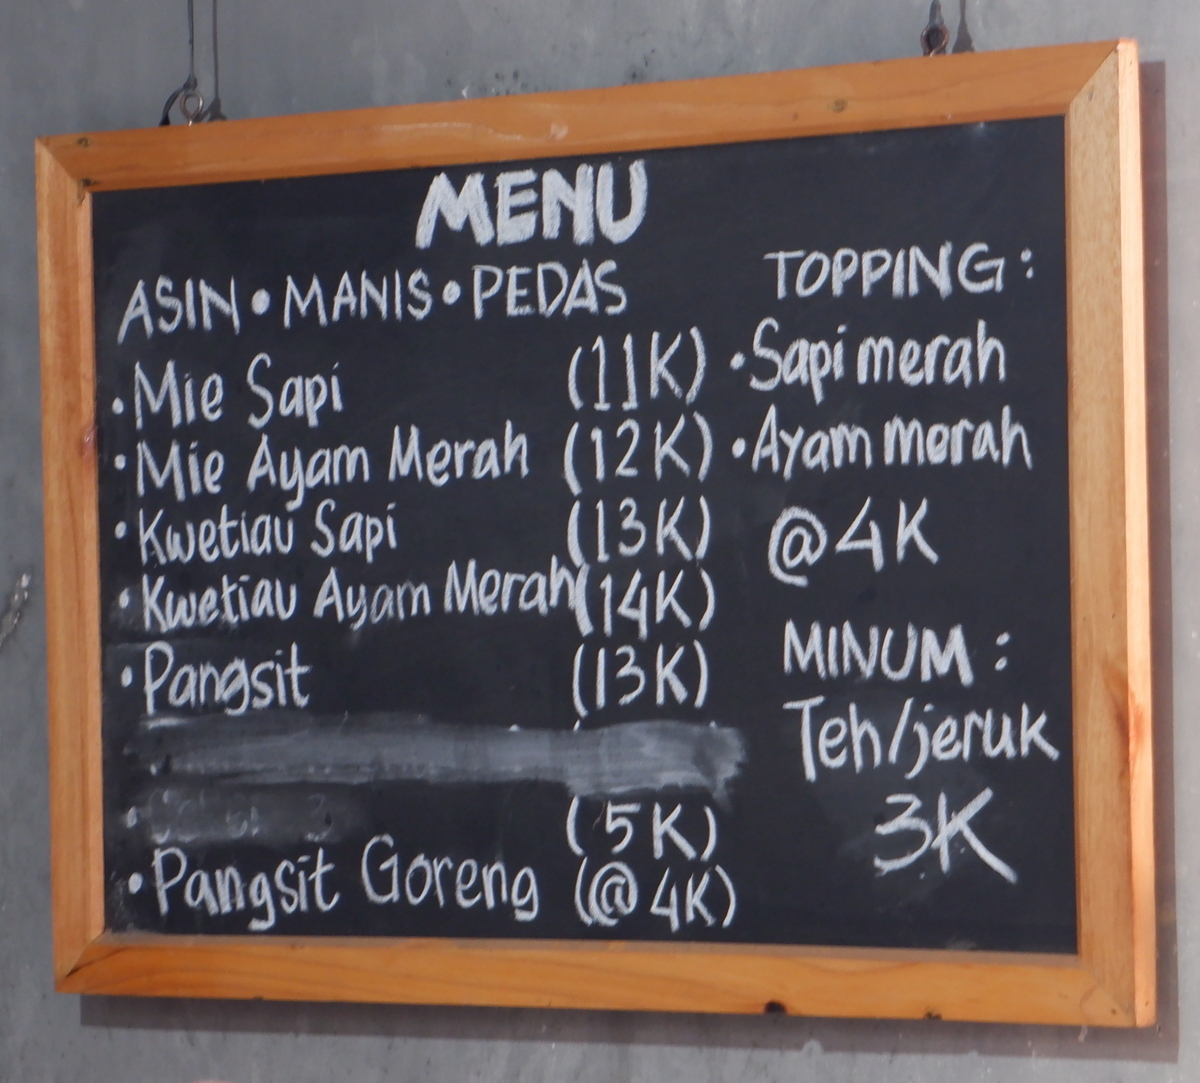 MENU
ASIN • MANIS • PEDAS
• Mie Sapi (11K)
• Mie Ayam Merah (12K)
• Kwetiau Sapi (13K)
• Kwetiau Ayam Merah (14K)
• Pangsit (13K)
• (5K)
• Pangsit Goreng (@ 4K)
TOPPING :
• Sapi merah
• Ayam merah
@ 4K
MINUM :
Teh/jeruk
3K